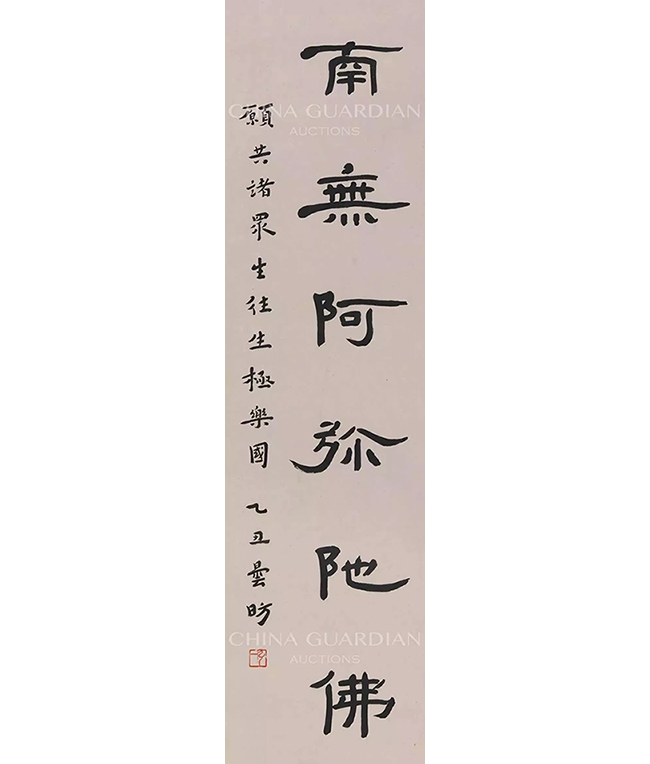 南無阿弥陁佛
願共諸眾生往生極樂國 乙丑曇昉
CHINA GUARDIAN
AUCTIONS
CHINA GUARDIAN
AUCTIONS